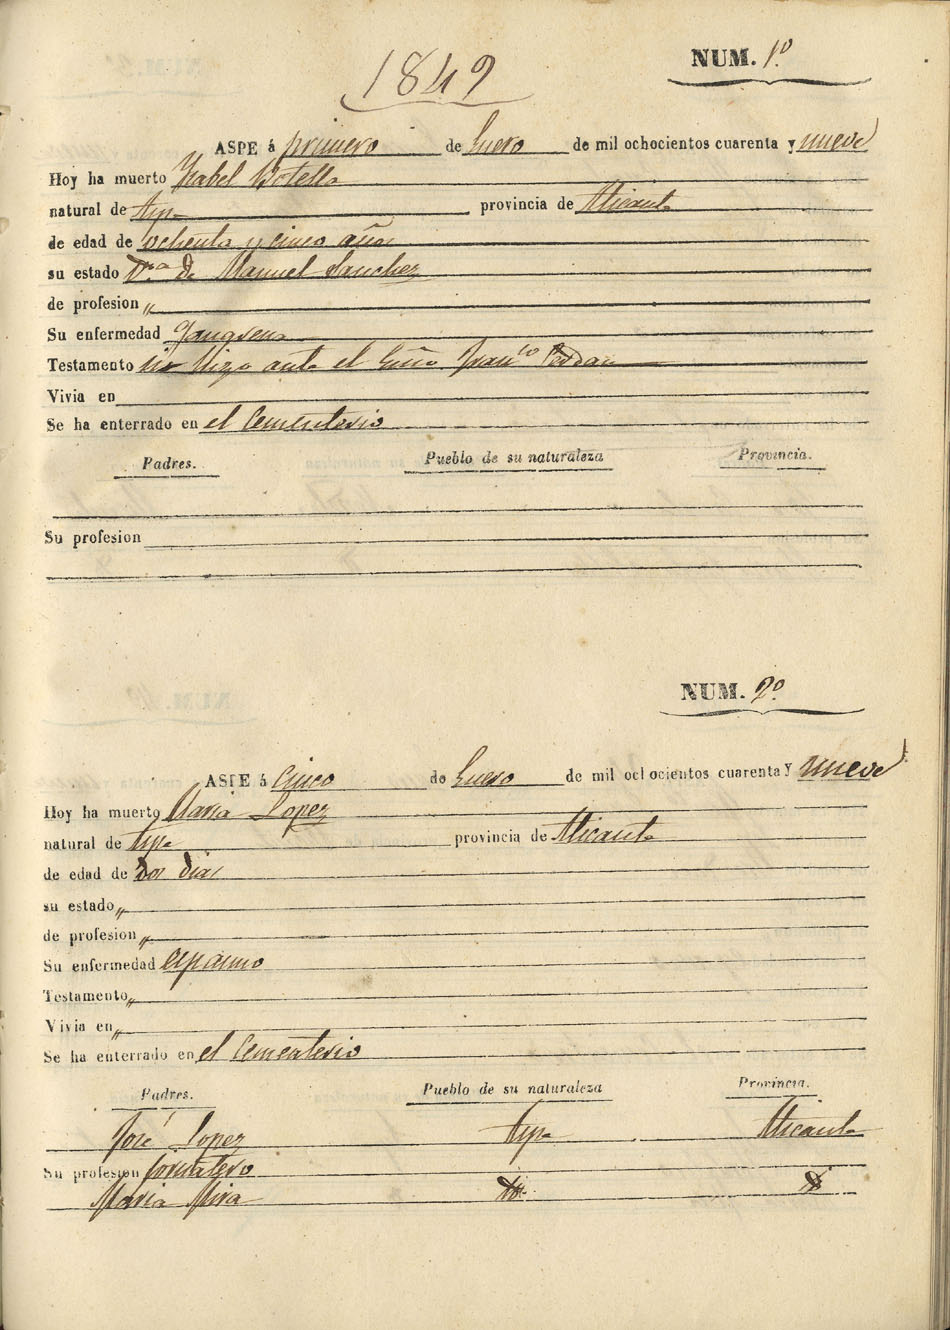 1849
NUM. 1º
ASPE á primero de Enero de mil ochocientos cuarenta y nueve
Hoy ha muerto Ysabel Botella
natural de Aspe provincia de Alicante
de edad de ochenta y cinco años
su estado Vda de Manuel Sanchez
de profesion "
Su enfermedad Gangrena
Testamento hizo ante el Franco
Vivia en
Se ha enterrado en el Cementerio
Padres. Pueblo de su naturaleza Provincia.
Su profesion
NUM. 2º
ASPE á Cinco de Enero de mil ochocientos cuarenta y nueve
Hoy ha muerto Maria Lopez
natural de Aspe provincia de Alicante
de edad de dos dias
su estado "
de profesion "
Su enfermedad espasmo
Testamento "
Vivia en "
Se ha enterrado en el Cementerio
Padres. Pueblo de su naturaleza Provincia.
José Lopez Aspe Alicante
Su profesion jornalero
Maria Mira